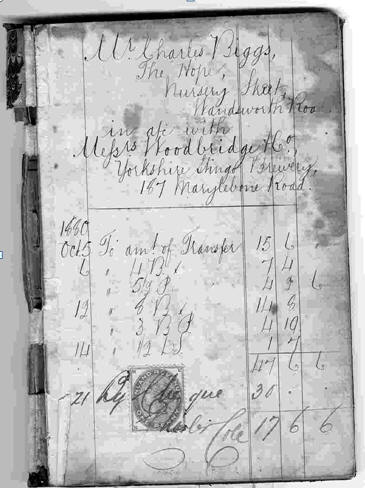 Mr. Charles Biggs,
The Hope,
Nursery Street,
Wandsworth Roa
in a/c with
Messrs Woodbridge & Co,
Yorkshire Stingo Brewery,
187 Marylebone Road.
1880
Oct 5 To amt. of Transfer 15 6 .
6 " 4 B 7 4
" 4 9 6
12 " 8 B 14 8
" 3 B 4 19
14 " 12 1 7
47 6 6
21 By Cheque 30 . .
Charles Cole 17 6 6